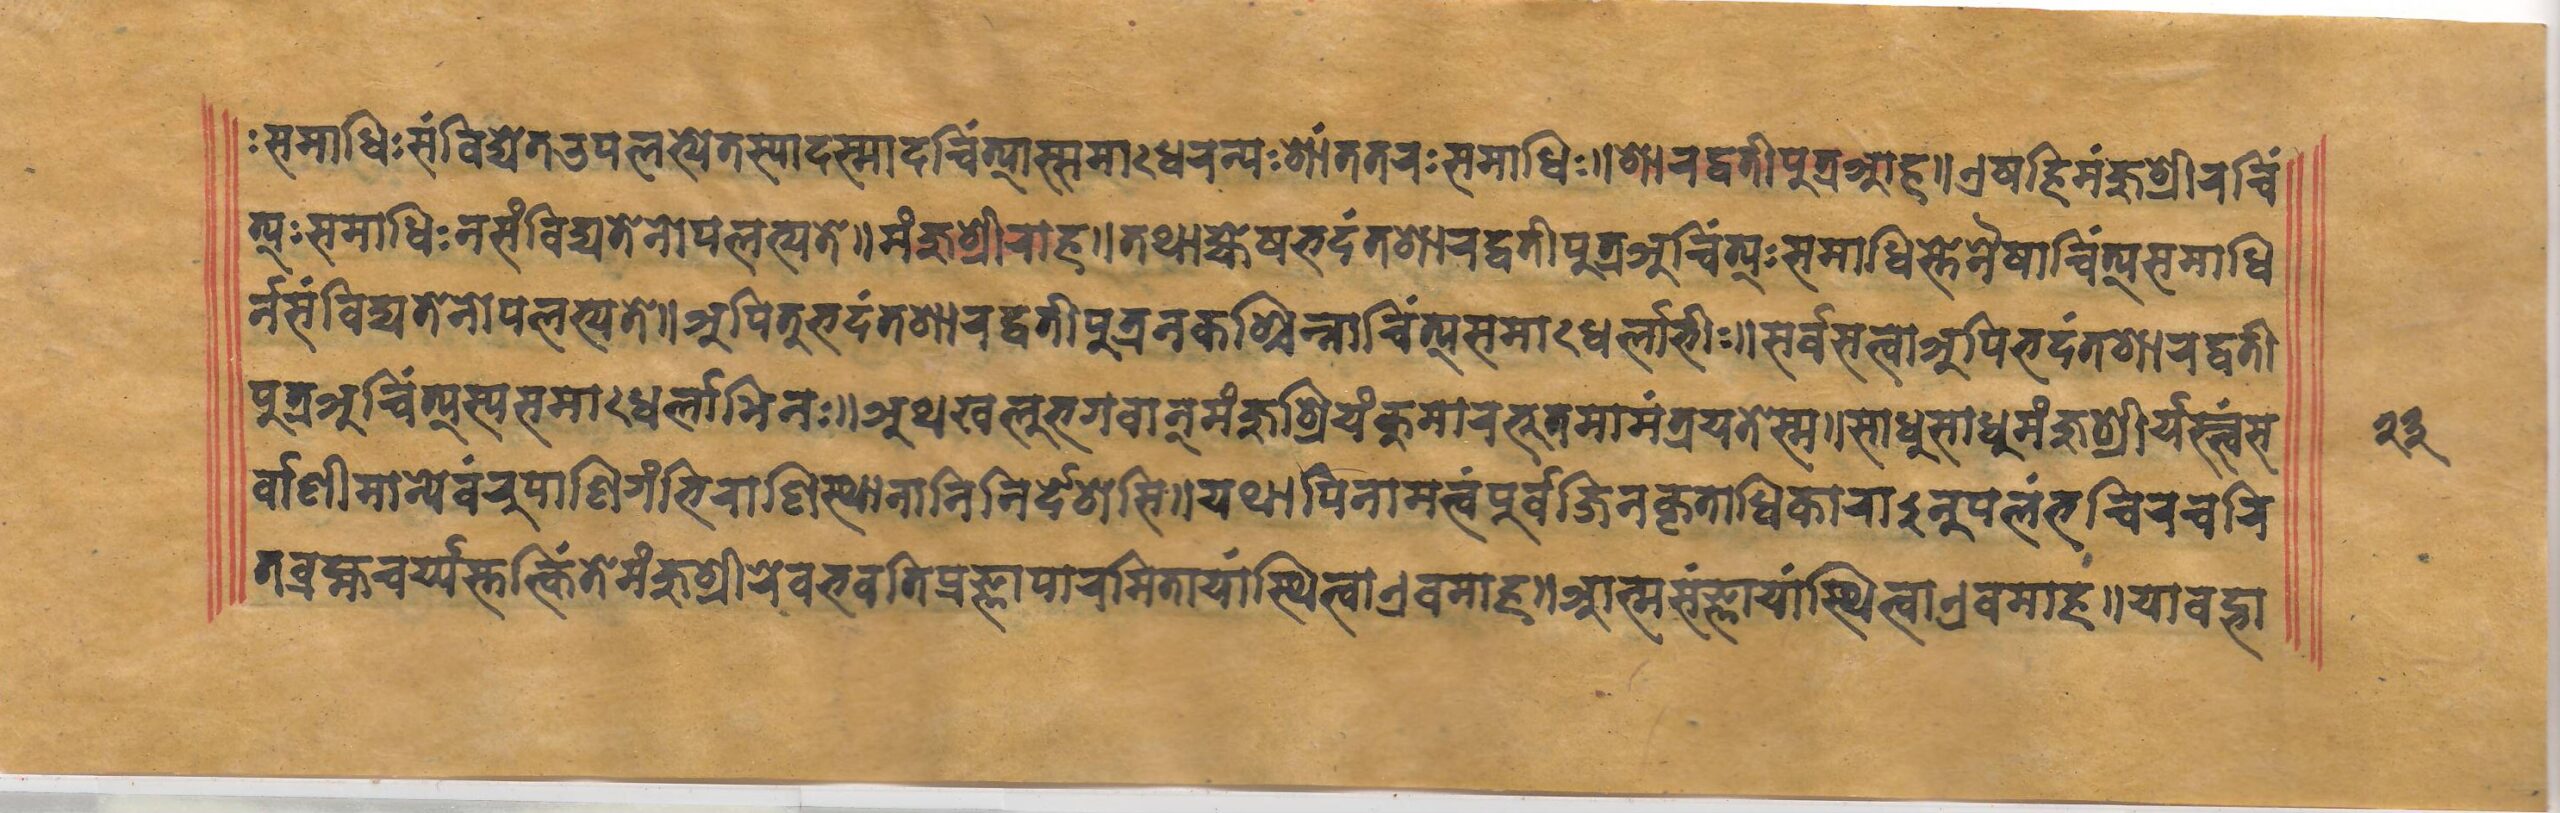 ः समाधिः संविद्येत उपलभ्येत स्यादस्मादचिंत्यास्समाेधरन्यः शांततरः समाधिः॥ शारद्वतीपुत्र आह॥ एष हि मंजुश्रीरचिं
त्यः समाधिः न संविद्यते नोपलभ्यते॥ मंजुश्रीराह॥ तथा ह्येष भदंत शारद्वतीपुत्र अचिंत्यः समाधिस्तेनैषाचिंत्यसमाधि
र्न संविद्यते नोपलभ्यते॥ अपि तु भदंत शारद्वतीपुत्र न कश्चिन्नाचिंत्यसमाेधर्लाभीः॥ सर्वसत्वा अपि भदंत शारद्वती
पुत्र अचिंत्यस्य समाेधर्लाभिनः॥ अथ खलु भगवान् मंजुश्रियं कुमारभूतमामंत्रयते स्म॥ साधु साधु मंजुश्रीर्यस्त्वं स
र्वाणीमान्येवंरुपाणि गंभिराणि स्थानानि निर्देशसि॥ यथापि नाम त्वं पूर्वजिनकृताधिकाराऽनुपलंभचिरचरि
तब्रह्मचर्य्यस्तत्किं ते मंजुश्रीरेव भवति प्रज्ञापारमितायां स्थित्वा एवमाह॥ आत्मसंज्ञायां स्थित्वा एवमाहं॥ यावद्भा
२३